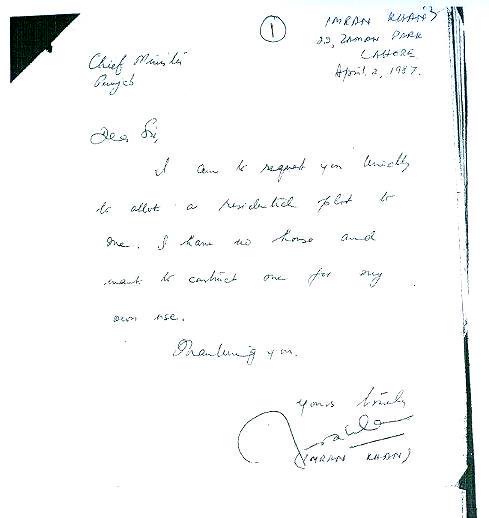 1
IMRAN KHAN
22, ZAMAN PARK
LAHORE
April 2, 1987.
Chief Minister
Punjab
Dear Sir,
I am to request you kindly
to allot a residential plot to
me. I have no house and
want to construct one for my
own use.
Thanking you.
Yours truly
(IMRAN KHAN)